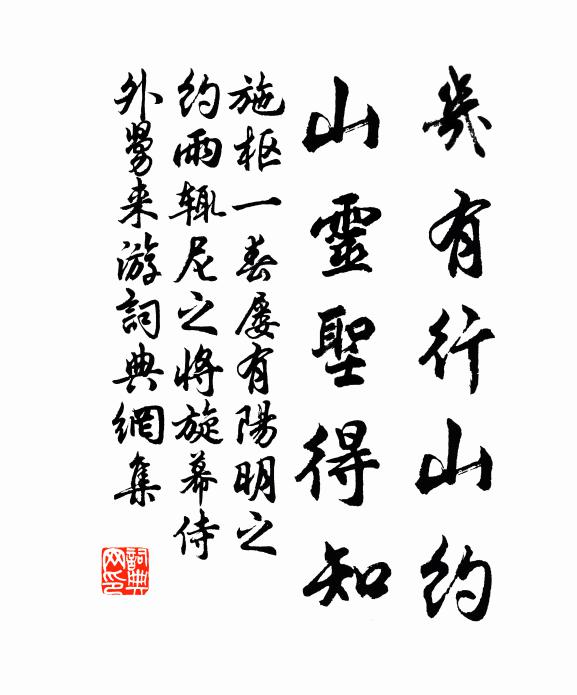 幾有行山約
山靈聖得知
施枢一春屢有陽明之
約雨辄尼之將旋幕侍
外舅来游詞典網集
詞典
网印